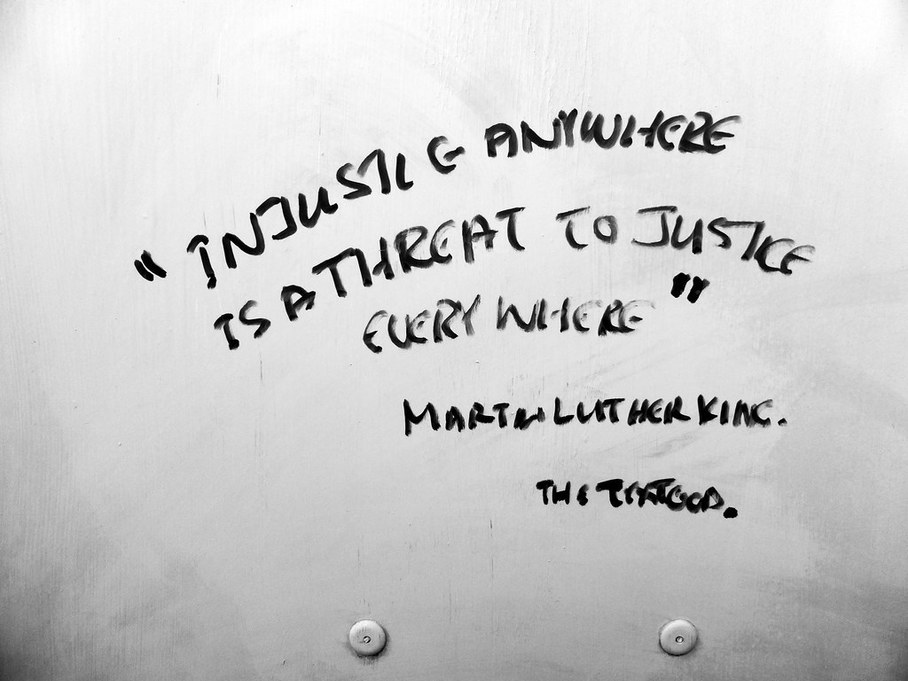 "INJUSTICE ANYWHERE
IS A THREAT TO JUSTICE
EVERYWHERE"
MARTIN LUTHER KING.
THE